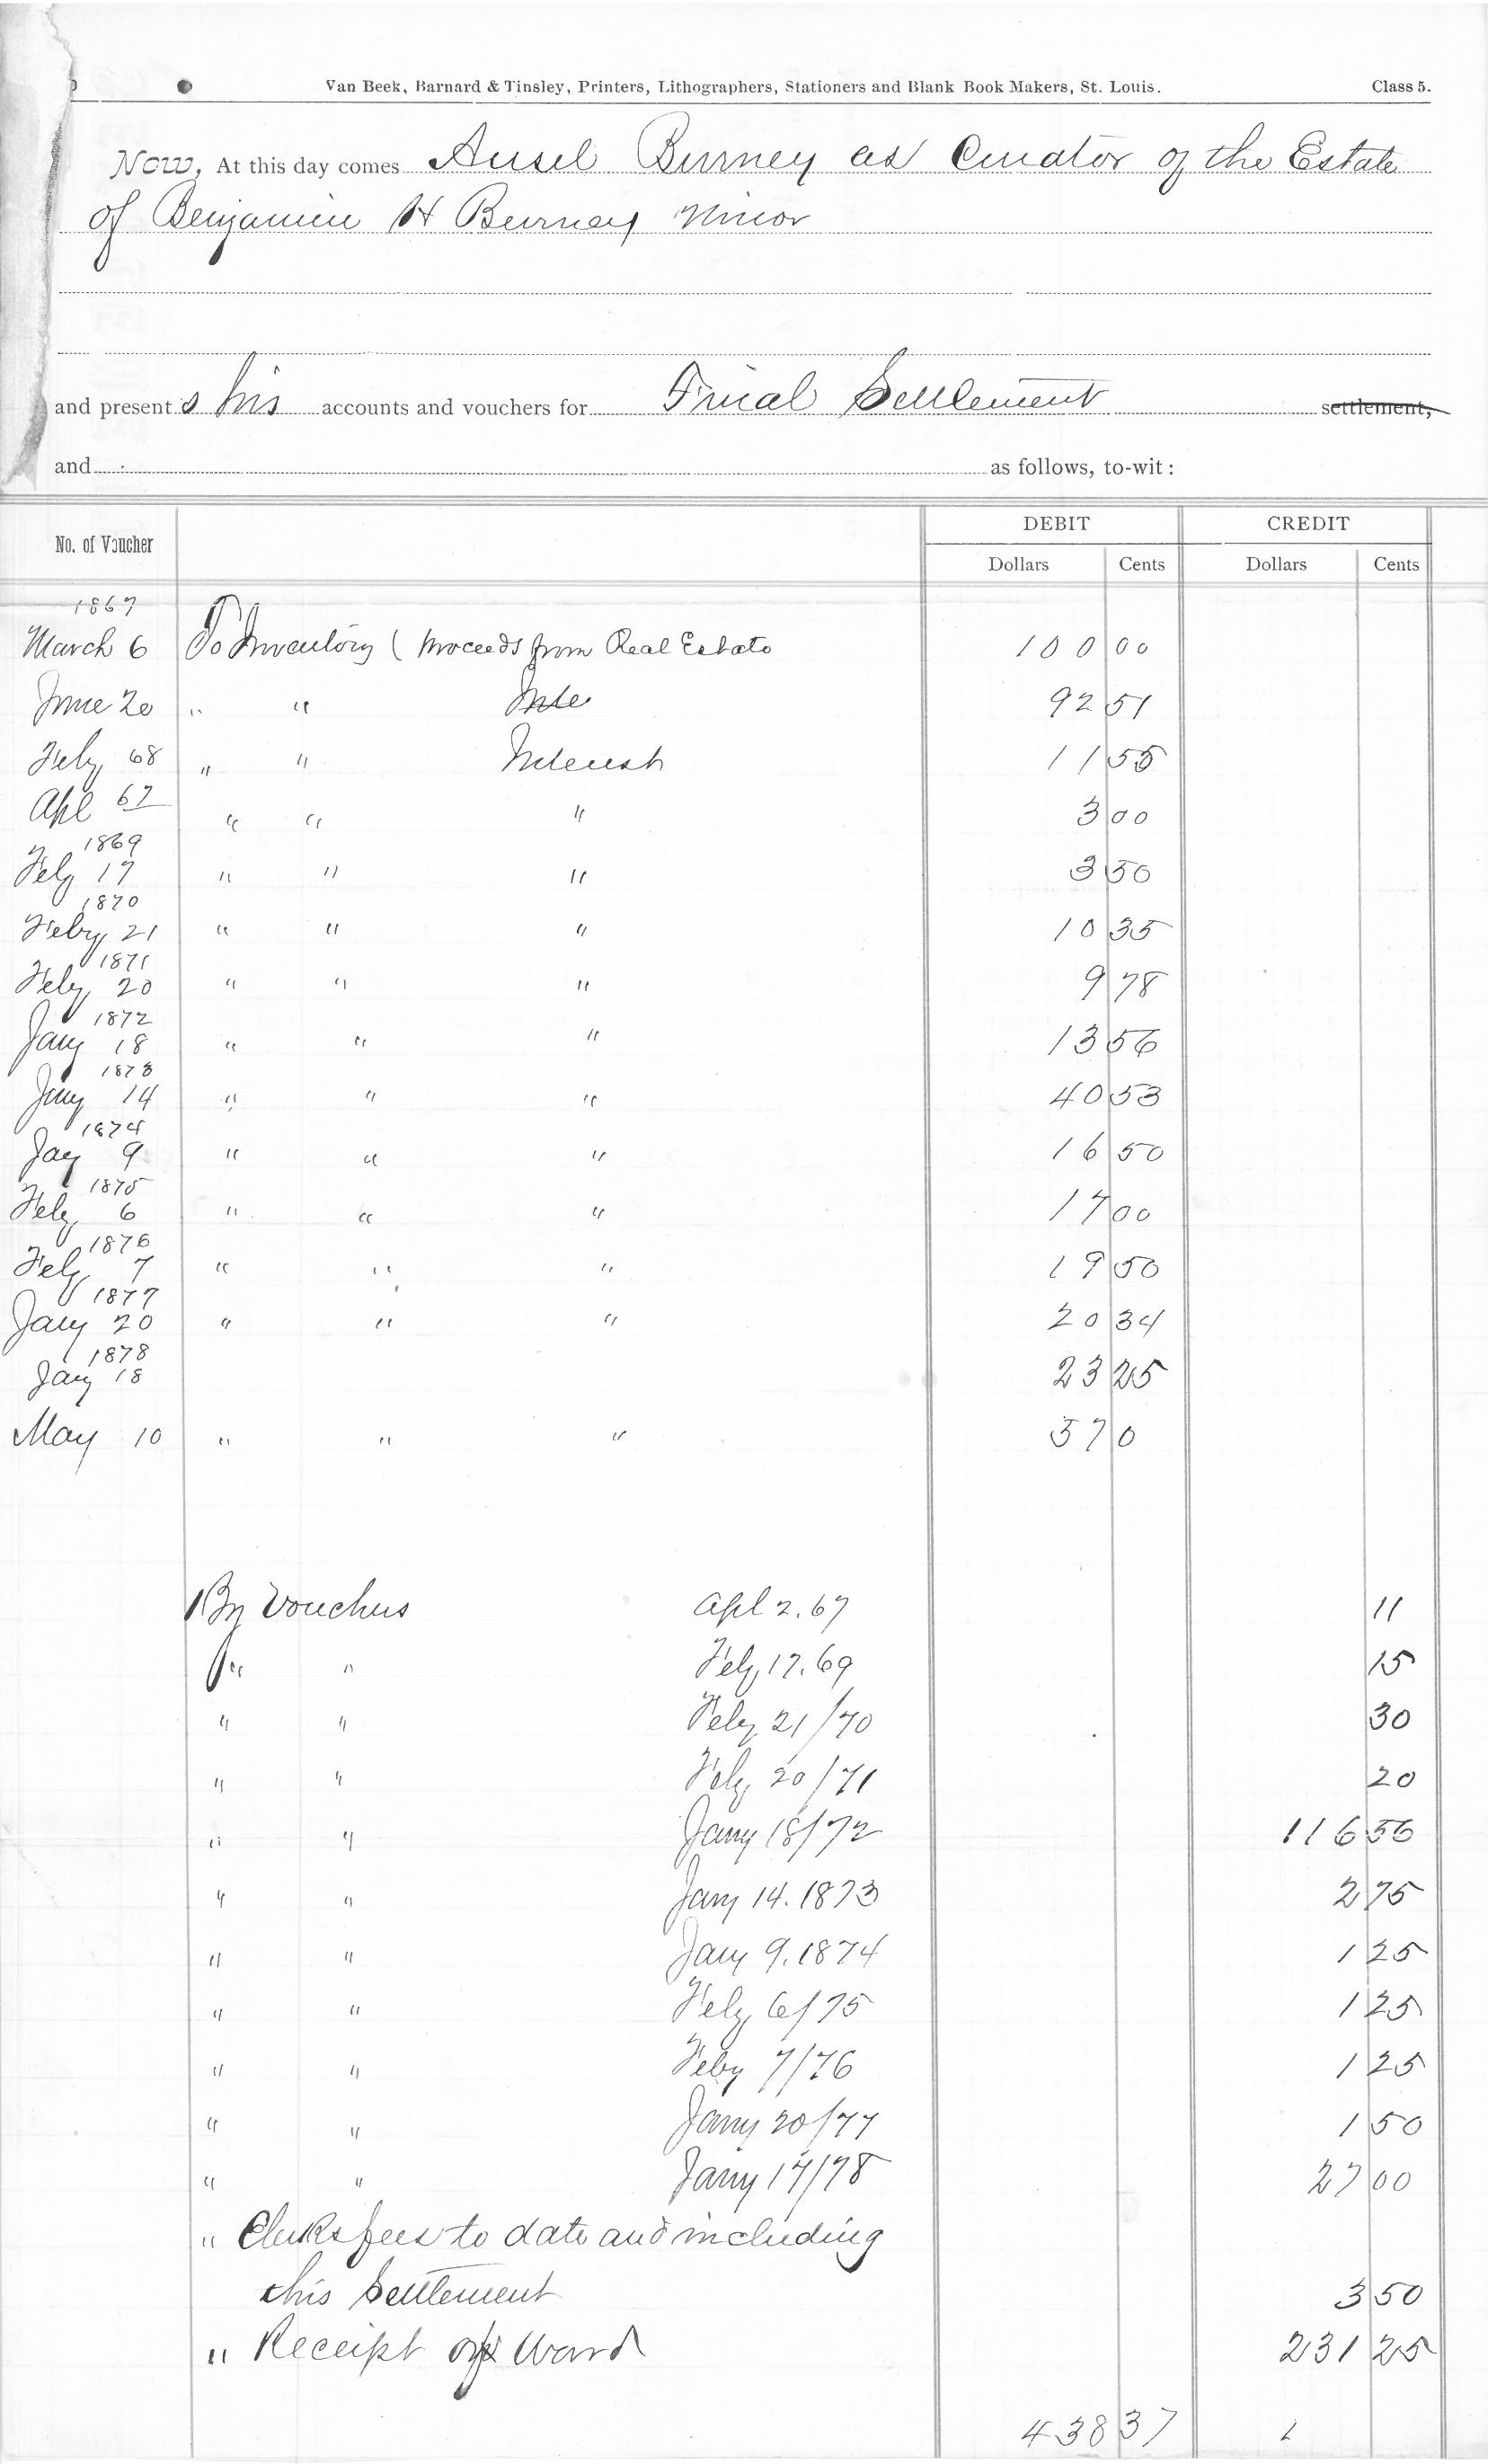 Van Beek, Barnard & Tinsley, Printers, Lithographers, Stationers and Blank Book Makers, St. Louis. Class 5.
Now, At this day comes Ansel Burney as Curator of the Estate
of Benjamin H Burney Minor
and presents his accounts and vouchers for Final Settlement settlement,
and as follows, to-wit:
No. of Voucher DEBIT CREDIT
Dollars Cents Dollars Cents
1867
March 6 To Inventory ( Proceeds from Real Estate 100 00
June 20 " " Inte 92 51
Feby 68 " " Interest 11 55
Apl 67 " " " 3 00
1869
Feby 17 " " " 3 50
1870
Feby 21 " " " 10 35
1871
Feby 20 " " " 9 78
1872
Jany 18 " " " 13 56
1873
Jany 14 " " " 40 53
1874
Jay 9 " " " 16 50
1875
Feby 6 " " " 17 00
1876
Feby 7 " " " 19 50
1877
Jany 20 " " " 20 34
1878
Jany 18 23 25
May 10 " " " 57 0
By Vouchers Apl 2. 67 11
" " Feby 17. 69 15
" " Feby 21/70 30
" " Feby 20/71 20
" " Jany 18/72 116 56
" " Jany 14. 1873 2 75
" " Jany 9. 1874 1 25
" " Feby 6/75 1 25
" " Feby 7/76 1 25
" " Jany 20/77 1 50
" " Jany 17/78 27 00
" Clerks fees to date and including
this Settlement 3 50
" Receipt of Ward 231 25
438 37